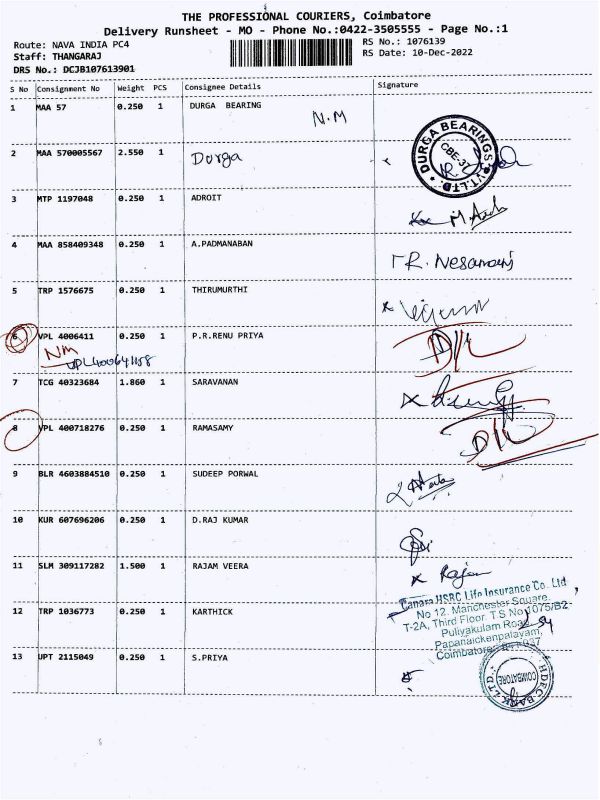 THE PROFESSIONAL COURIERS, Coimbatore
Delivery Runsheet - MO - Phone No.:0422-3505555 - Page No.:1
Route: NAVA INDIA PC4
Staff: THANGARAJ
DRS No.: DCJB107613901
RS No.: 1076139
RS Date: 10-Dec-2022
S No Consignment No Weight PCS Consignee Details Signature
1 MAA 57 0.250 1 DURGA BEARING
N.M
DURGA BEARINGS PVT. LTD.
CBE-37
2 MAA 570005567 2.550 1 Durga
3 MTP 1197048 0.250 1 ADROIT
4 MAA 858409348 0.250 1 A.PADMANABAN
R. Nesamani
5 TRP 1576675 0.250 1 THIRUMURTHI
6 VPL 4006411 0.250 1 P.R.RENU PRIYA
NM
D/L
7 TCG 40323684 1.860 1 SARAVANAN
8 VPL 400718276 0.250 1 RAMASAMY
D/L
9 BLR 4603884510 0.250 1 SUDEEP PORWAL
10 KUR 607696206 0.250 1 D.RAJ KUMAR
11 SLM 309117282 1.500 1 RAJAM VEERA
x Rajam
Canara HSBC Life Insurance Co. Ltd
No 12, Manchester Square,
T-2A, Third Floor, T.S No 1075/B2-
Puliyakulam Road,
Papanaickenpalayam,
Coimbatore
12 TRP 1036773 0.250 1 KARTHICK
13 UPT 2115049 0.250 1 S.PRIYA
HDFC BANK LTD.
COIMBATORE